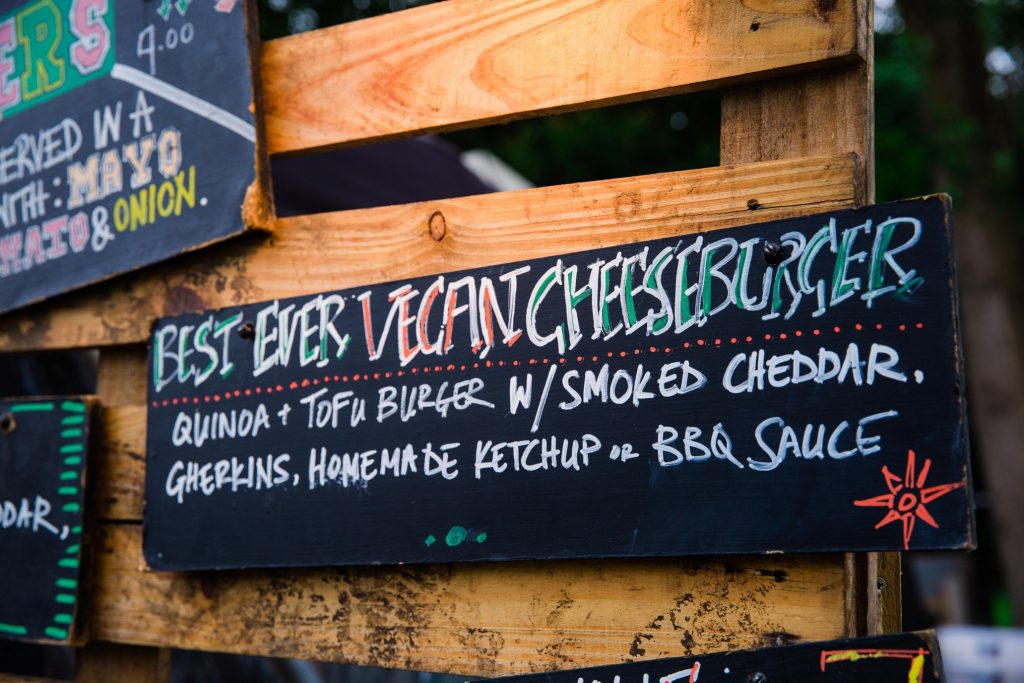 ERS
4.00
ERVED IN A
ITH: MAYO
MATO & ONION.
BEST EVER VEGAN CHEESEBURGER
QUINOA + TOFU BURGER W/ SMOKED CHEDDAR.
GHERKINS, HOMEMADE KETCHUP OR BBQ SAUCE
DDAR,